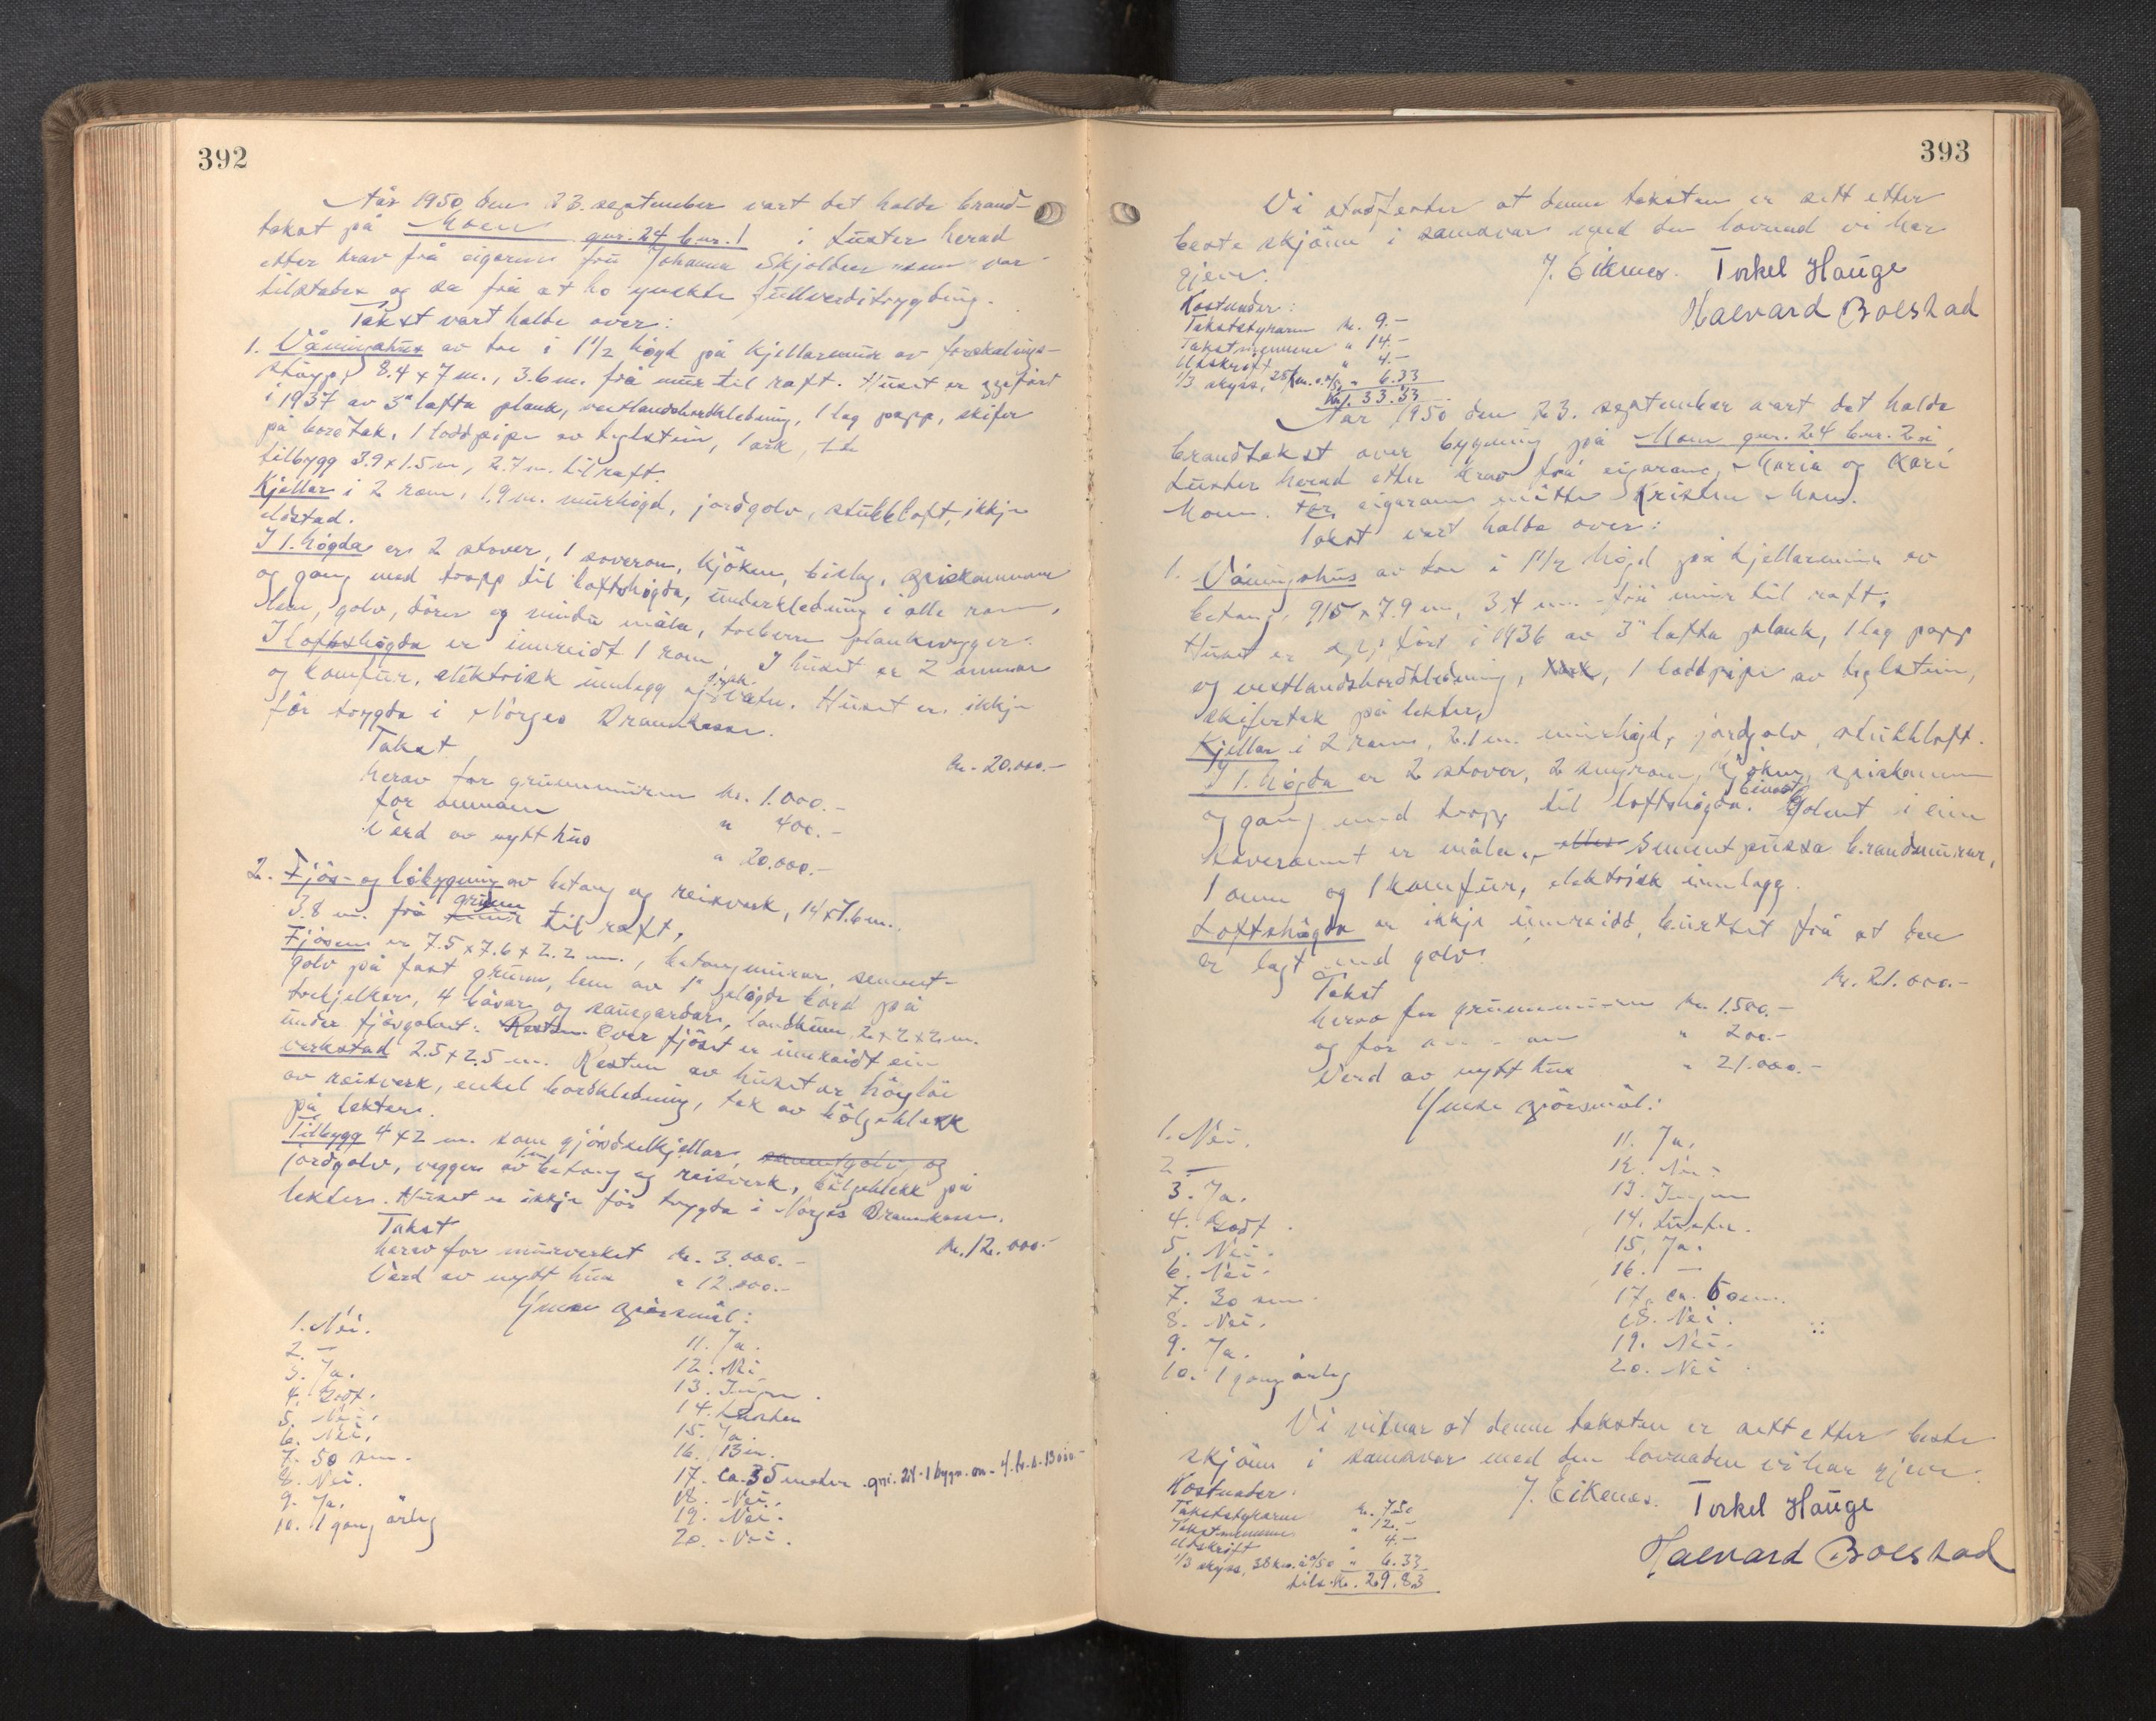 392
År 1950 den 23. september vart det halde brand-
takst på Moen gnr. 24 bnr. 1 i Luster herad
etter krav frå eigaren fru Johanna Skjolden som var
tilstades og sa frå at ho ynskte fullverditrygding.
Takst vart halde over:
1. Våningshus av tre i 1 1/2 høgd på kjellarmur av forskalings-
støyp, 8.4 x 7 m., 3.6 m. frå mur til raft. Huset er oppført
i 1937 av 3" lafta plank, vestlandsbordkledning, 1 lag papp, skifer
på bordtak, 1 loddpipe av teglstein, 1 ark, 1
tilbygg 3.9 x 1.5 m, 2.7 m. til raft.
Kjellar i 2 rom, 1.9 m. murhøgd, jordgolv, stubbloft, ikkje
eldstad.
I 1. høgda er 2 stover, 1 soverom, kjöken, bislag, spiskammer
og gang med trapp til loftshögda, underkledning i alle rom,
lem, golv, dörer og vindu måla, troberre plankvegger.
I loftshögda er innreidt 1 rom. I huset er 2 omnar
og komfur, elektrisk innlegg og innl. vatn. Huset er ikkje
för trygda i Norges Brannkasse.
Takst kr. 20.000.-
herav for grunnmuren kr. 1.000.-
for omnane " 400.-
Verd av nytt hus " 20.000.-
2. Fjös- og löbygning av betong og reisverk, 14 x 7.6 m.
3.8 m. frå grunn til raft.
Fjösen er 7.5 x 7.6 x 2.2 m., betongmurar, sement-
golv på fast grunn, lem av 1" pløgde bord på
trebjelker, 4 båsar og sauegardar, landkum 2 x 2 x 2 m.
under fjösgolvet. Over fjöset er innreidt ein
verkstad 2.5 x 2.5 m. Resten av huset er höyløe
av reisverk, enkel bordkledning, tak av bölgeblekk
på lekter.
Tilbygg 4 x 2 m. som gjödselkjellar,
jordgolv, veggen av betong og reisverk, bölgeblekk på
lekter. Huset er ikkje för trygda i Norges Brannkasse.
Takst kr. 12.000.-
herav for murverket kr. 3.000.-
Verd av nytt hus " 12.000.-
Ymse spörsmål:
1. Nei.
2. —
3. Ja.
4. Godt.
5. Nei.
6. Nei.
7. 50 sm.
8. Nei.
9. Ja.
10. 1 gong årleg
11. Ja.
12. Nei.
13. Ingen.
14. Luster
15. Ja.
16. 13 m.
17. Ca. 35 meter . gnr. 24 - 1 bygn.
18. Nei.
19. Nei.
20. Nei.
393
Vi stadfester at denne taksten er sett etter
beste skjönn i samsvar med den lovnad vi har
gjeve.
J. Eikenes. Torkel Hauge
Halvard Bolstad
Kostnader:
Takststyraren kr. 9.-
Takstmennene " 14.-
Utskrift " 4.-
1/3 skyss, 6.33
Kr. 33.33
År 1950 den 23. september vart det halde
brandtakst over bygning på Moen gnr. 24 bnr. 2 i
Luster herad etter krav frå eigarane, Maria og Kari
Moen. For eigarane mötte Kristen Moen.
Takst vart halde over:
1. Våningshus av tre i 1 1/2 högd på kjellarmur av
betong, 9.15 x 7.9 m, 3.4 m. frå mur til raft.
Huset er oppfört i 1936 av 3" lafta plank, 1 lag papp
og vestlandsbordkledning, 1 loddpipe av teglstein,
skifertak på lekter.
Kjellar i 2 rom, 2.1 m. murhögd, jordgolv, stubbloft.
I 1. högda er 2 stover, 2 smårom, kjöken, spiskammer
og gang med trapp til loftshögda. Golvet i ein
soveromet er måla, sementpussa brandmurar,
1 omn og 1 komfur, elektrisk innlegg.
Loftshögda er ikkje innreidd, burtset frå at der
er lagt ned golv.
Takst kr. 21.000.-
herav for grunnmuren kr. 1.500.-
og for omnen " 200.-
Verd av nytt hus " 21.000.-
Ymse spörsmål:
1. Nei.
2. —
3. Ja.
4. Godt.
5. Nei.
6. Nei.
7. 30 sm.
8. Nei.
9. Ja.
10. 1 gong årleg
11. Ja.
12. Nei.
13. Ingen
14. Luster.
15. Ja.
16. —
17. ca. 60 m.
18. Nei.
19. Nei.
20. Nei
Vi vitnar at denne taksten er sett etter beste
skjönn i samsvar med den lovnaden vi har gjeve.
J. Eikenes. Torkel Hauge
Halvard Bolstad
Kostnader:
Takststyraren kr. 7.50
Takstmennene " 12.-
Utskrift " 4.-
1/3 skyss, 38 km. à 0/50 " 6.33
tils. Kr. 29.83